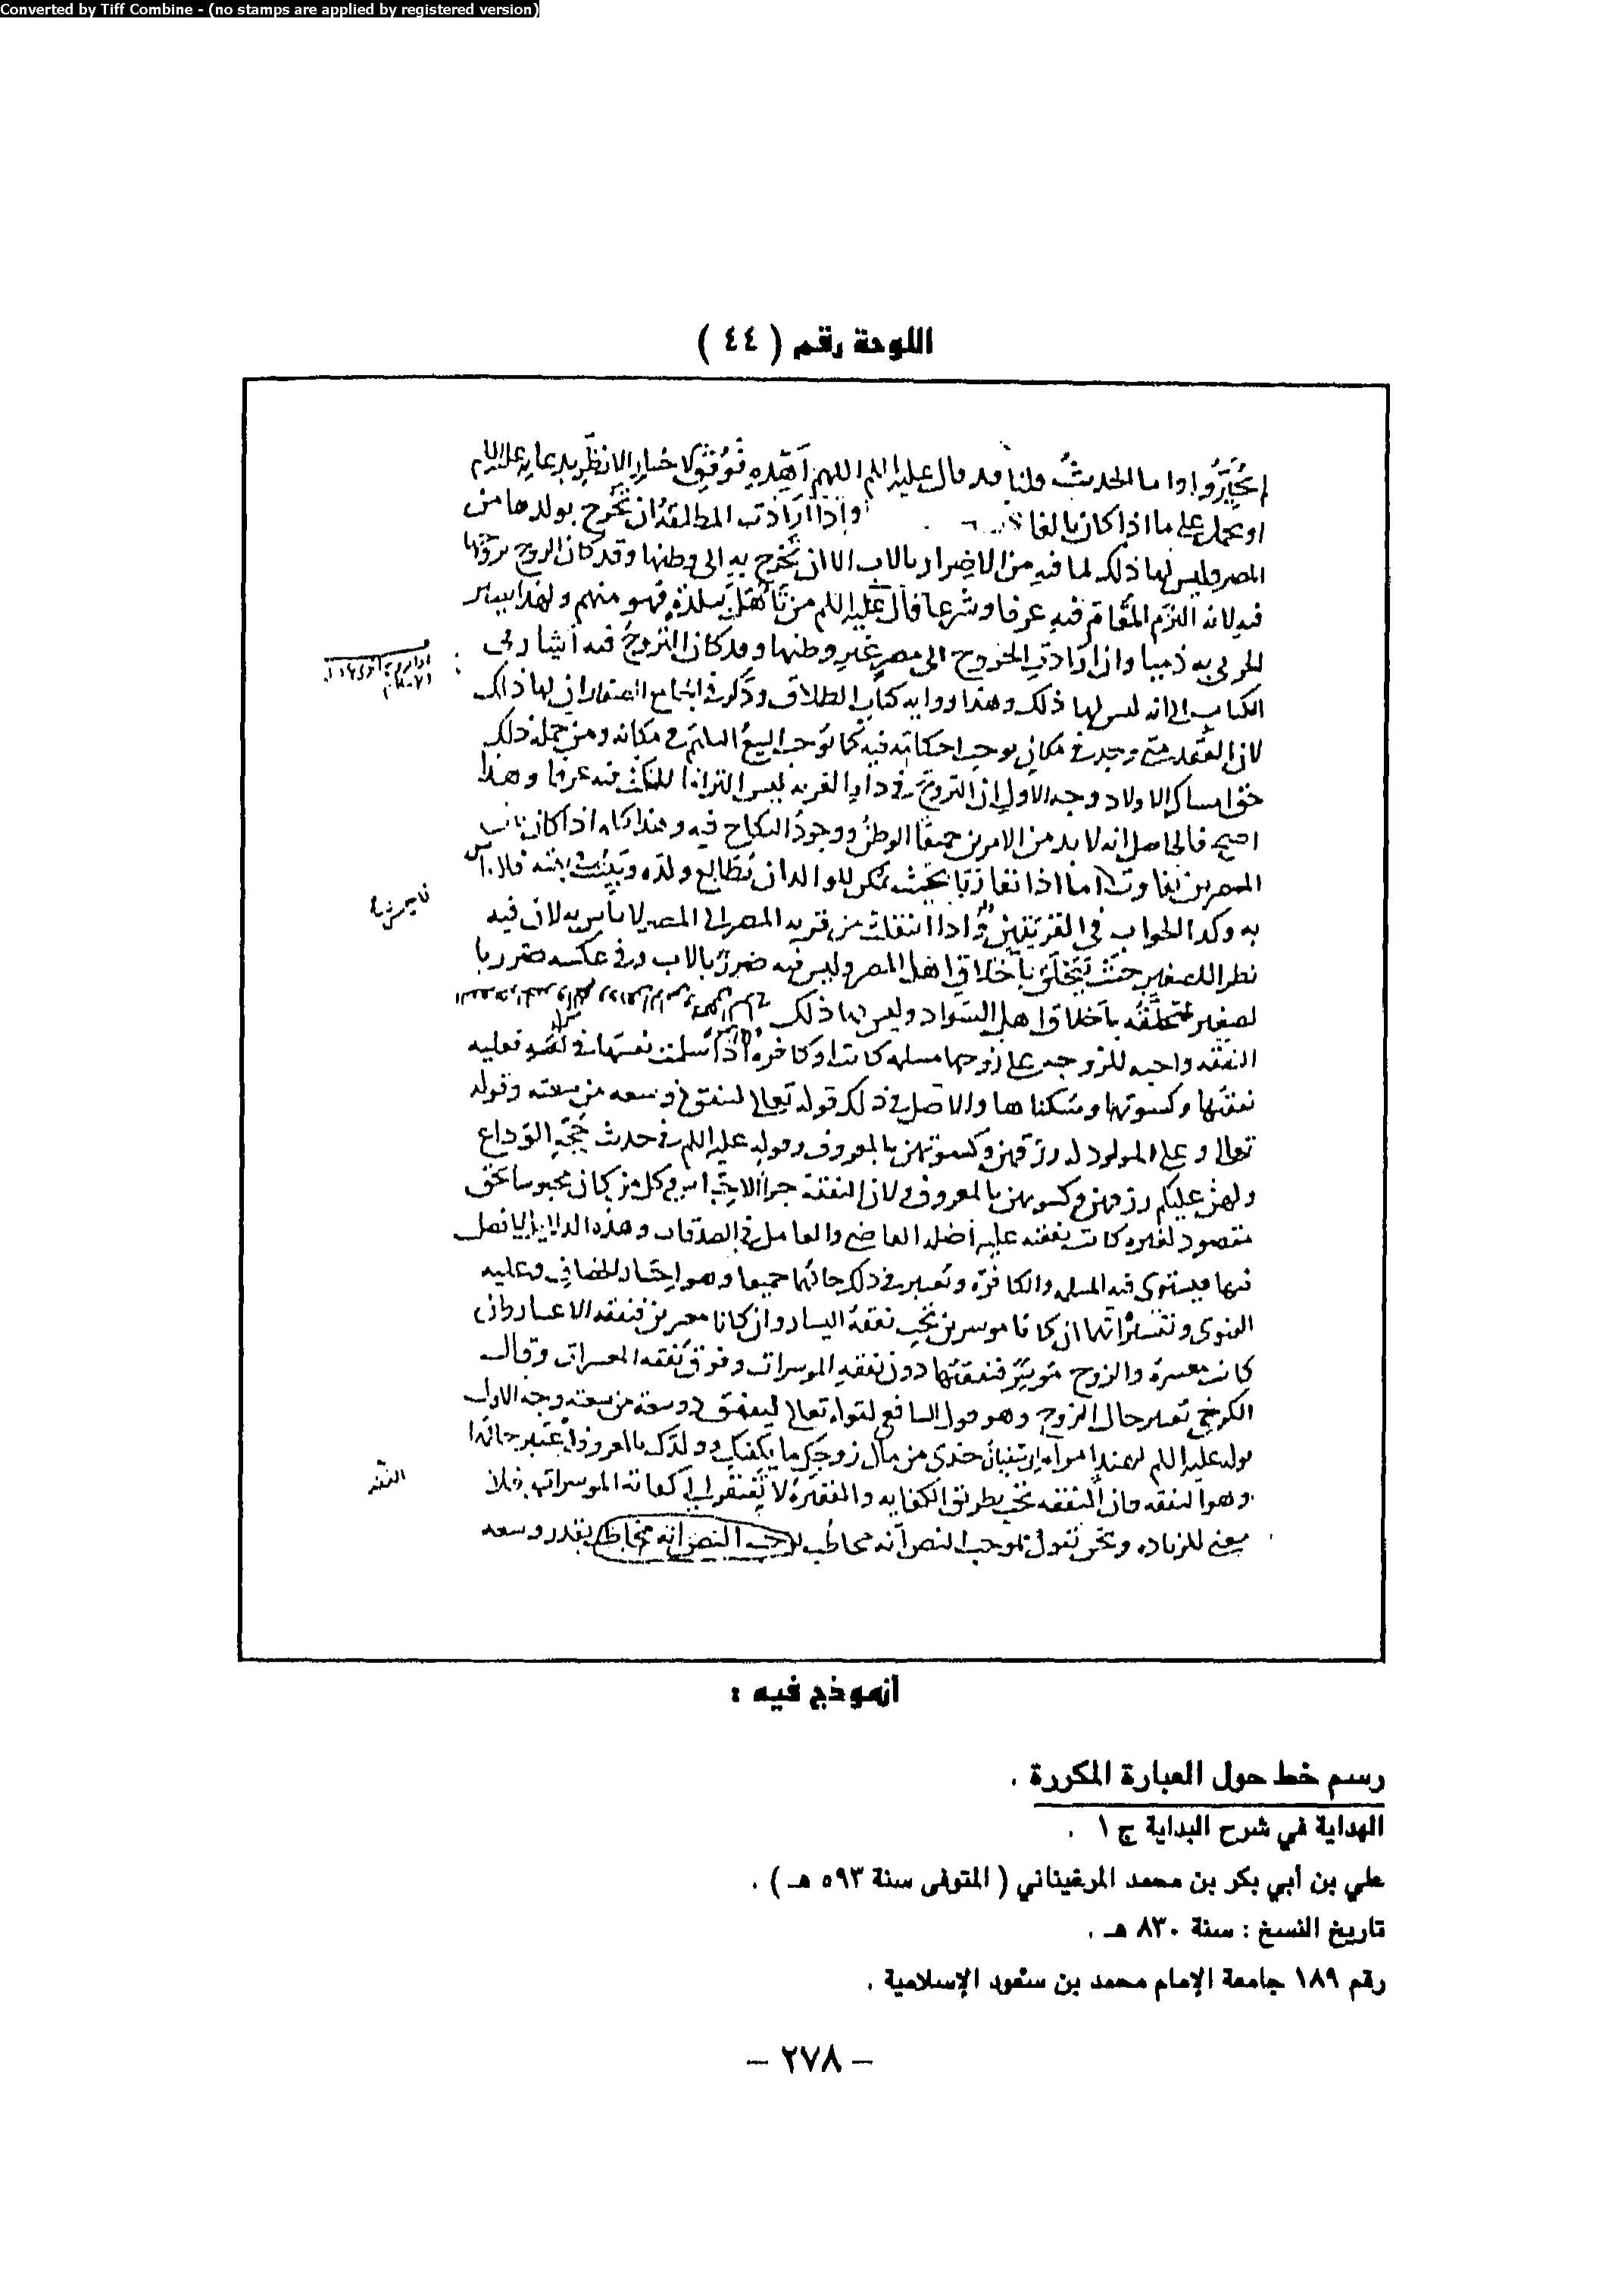 Converted by Tiff Combine - (no stamps are applied by registered version)
اللوحة رقم ( ٤٤ )
اما الحديث قلنا قد قال عليه اللم اللهم اهده
او يحمل على ما اذا كان بالغا واذا ارادت المطلقة ان تخرج بولدها من
المصر وليس لها ذلك لما فيه من الاضرار بالاب الا ان تخرج به الى وطنها وقد كان الزوج تزوجها
فيه لانه التزم المقام فيه عرفا وشرعا قال عليه اللم من تأهل ببلدة فهو منهم ولهذا يصير
الحربى به ذميا وان ارادت الخروج الى مصر غير وطنها وقد كان التزوج فيه اشار فى
الكتاب الى انه ليس لها ذلك وهذا رواية كتاب الطلاق وذكر فى الجامع الصغير ان لها ذلك
لان العقد متى وجد فى مكان يوجب احكامه فيه كما يوجب البيع التسليم فى مكانه ومن جملة ذلك
حق امساك الاولاد وجه الاول ان التزوج فى دار الغربه ليس التزاما للمكث فيه عرفا وهذا
اصح فالحاصل انه لا بد من الامرين جميعا الوطن ووجود النكاح فيه وهذا كله اذا كان بين
المصرين تفاوت اما اذا تقاربا بحيث يمكن للوالد ان يطالع ولده ويبيت فى بيته فلا باس
به وكذا الجواب فى القريتين ولو انتقلت من قريه المصر الى المصر لا باس به لان فيه
نظرا للصغير حيث يتخلق باخلاق اهل المصر وليس فيه ضرر بالاب وفى عكسه ضرر با
لصغير لتخلقه باخلاق اهل السواد وليس لها ذلك
النفقه واجبه للزوجه على زوجها مسلمه كانت او كافره اذا سلمت نفسها فى منزله فعليه
نفقتها وكسوتها وسكناها والاصل فى ذلك قوله تعالى لينفق ذو سعه من سعته وقوله
تعالى وعلى المولود له رزقهن وكسوتهن بالمعروف وقوله عليه اللم فى حديث حجة الوداع
ولهن عليكم رزقهن وكسوتهن بالمعروف ولان النفقة جزاء الاحتباس وكل من كان محبوسا بحق
مقصود لغيره كانت نفقته عليه اصله القاضى والعامل فى الصدقات وهذه الدلايل لا فصل
فيها فيستوى فيه المسلمه والكافره وتعتبر فى ذلك حالهما جميعا وهو اختيار الخصاف وعليه
الفتوى وتفسيره انهما ان كانا موسرين تجب نفقة اليسار وان كانا معسرين فنفقه الاعسار وان
كانت معسرة والزوج موسر فنفقتها دون نفقه الموسرات وفوق نفقه المعسرات وقال
الكرخى تعتبر حال الزوج وهو قول الشافعى لقوله تعالى لينفق ذو سعة من سعته وجه الاول
قوله عليه اللم لهند امراة ابى سفيان خذى من مال زوجك ما يكفيك وولدك بالمعروف اعتبر حالها
وهو النفقه فان النفقه تجب بطريق الكفايه والفقيرة لا تفتقر الى كفاية الموسرات فلا
معنى للزياده ونحن نقول بموجب النص انه مخاطب بموجب النص انه مخاطب بقدر وسعه
النفقه
أنموذج فيه :
رسم خط حول العبارة المكررة .
الهداية في شرح البداية ج ١ .
علي بن أبي بكر بن محمد المرغيناني ( المتوفى سنة ٥٩٣ هـ ) .
تاريخ النسخ : سنة ٨٣٠ هـ .
رقم ١٨٩ جامعة الإمام محمد بن سعود الإسلامية .
– ٢٧٨ –